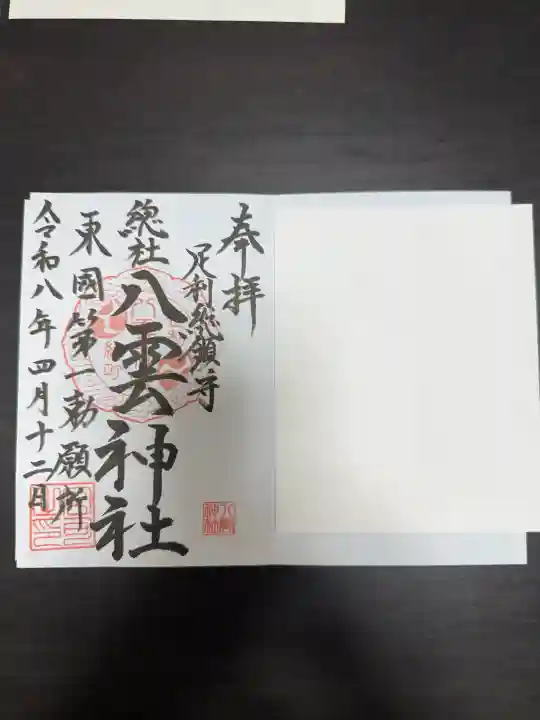 奉拝
足利総鎮守
總社
八雲神社
東國第一勅願所
令和八年四月十二日